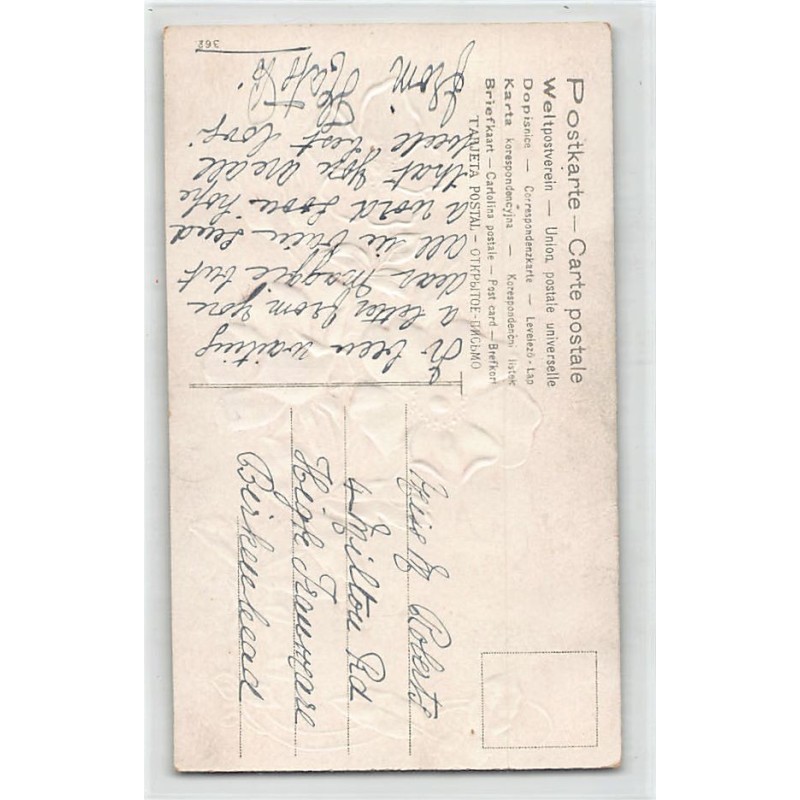 Postkarte — Carte postale
Weltpostverein — Union postale universelle
Dopisnice — Correspondenzkarte — Levelező-Lap
Karta korespondencyjna — Korespondenční lístek
Briefkaart — Cartolina postale — Post card — Brefkort
TARJETA POSTAL — ОТКРЫТОЕ-ПИСЬМО
been waiting
a letter from you
dear Maggie but
all in vain send
a word soon hope
that you are all
well best love
from
362
Miss M Roberts
4 Milton Rd
High Tranmere
Birkenhead